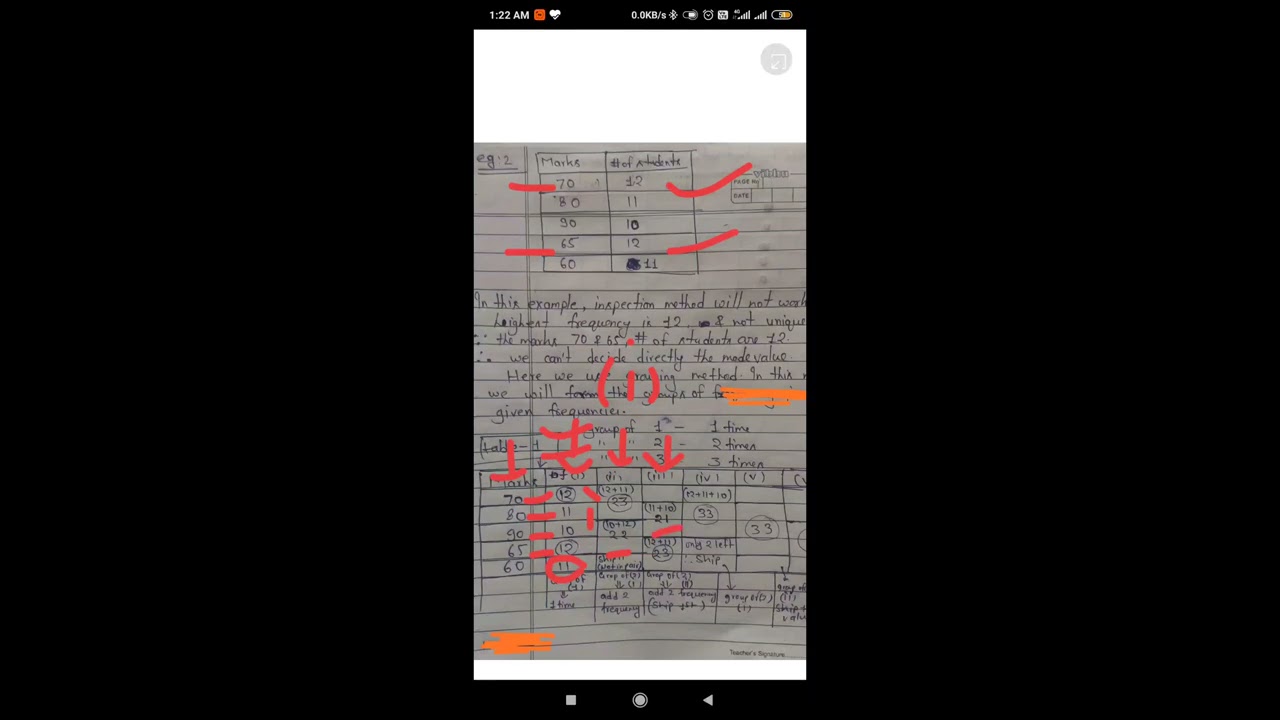 1:22 AM 0.0KB/s
eg:2
Marks # of students
70 12
80 11
90 10
65 12
60 11
vibhu
PAGE No
DATE
In this example, inspection method will not work
heighest frequency is 12, & not unique
∵ the marks 70 & 65, # of students are 12.
∴ we can't decide directly the mode value.
Here we use grouping method. In this
(1)
we will form the groups of
given frequencies.
group of 1 - 1 time
table-1 " " 2 - 2 times
" " 3 3 times
Marks (i) (ii) (iii) (iv) (v)
70 12 (12+11) 23 (12+11+10)
80 11 (11+10) 21 33
90 10 (10+12) 22 33
65 12 (12+11) 23 only 2 left
60 11 Skip 11 ∴ Skip
1 time
add 2 frequency
add 2 frequency
(Skip 1st)
group of
value
Teacher's Signature